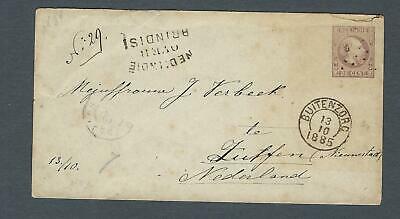 A: 29.
NED-INDIË
OVER
BRINDISI
Mejuffrouw J Verbeek
te
BUITENZORG
13
10
1885
Zutfen (Nieuwstad)
Nederland
13/10.